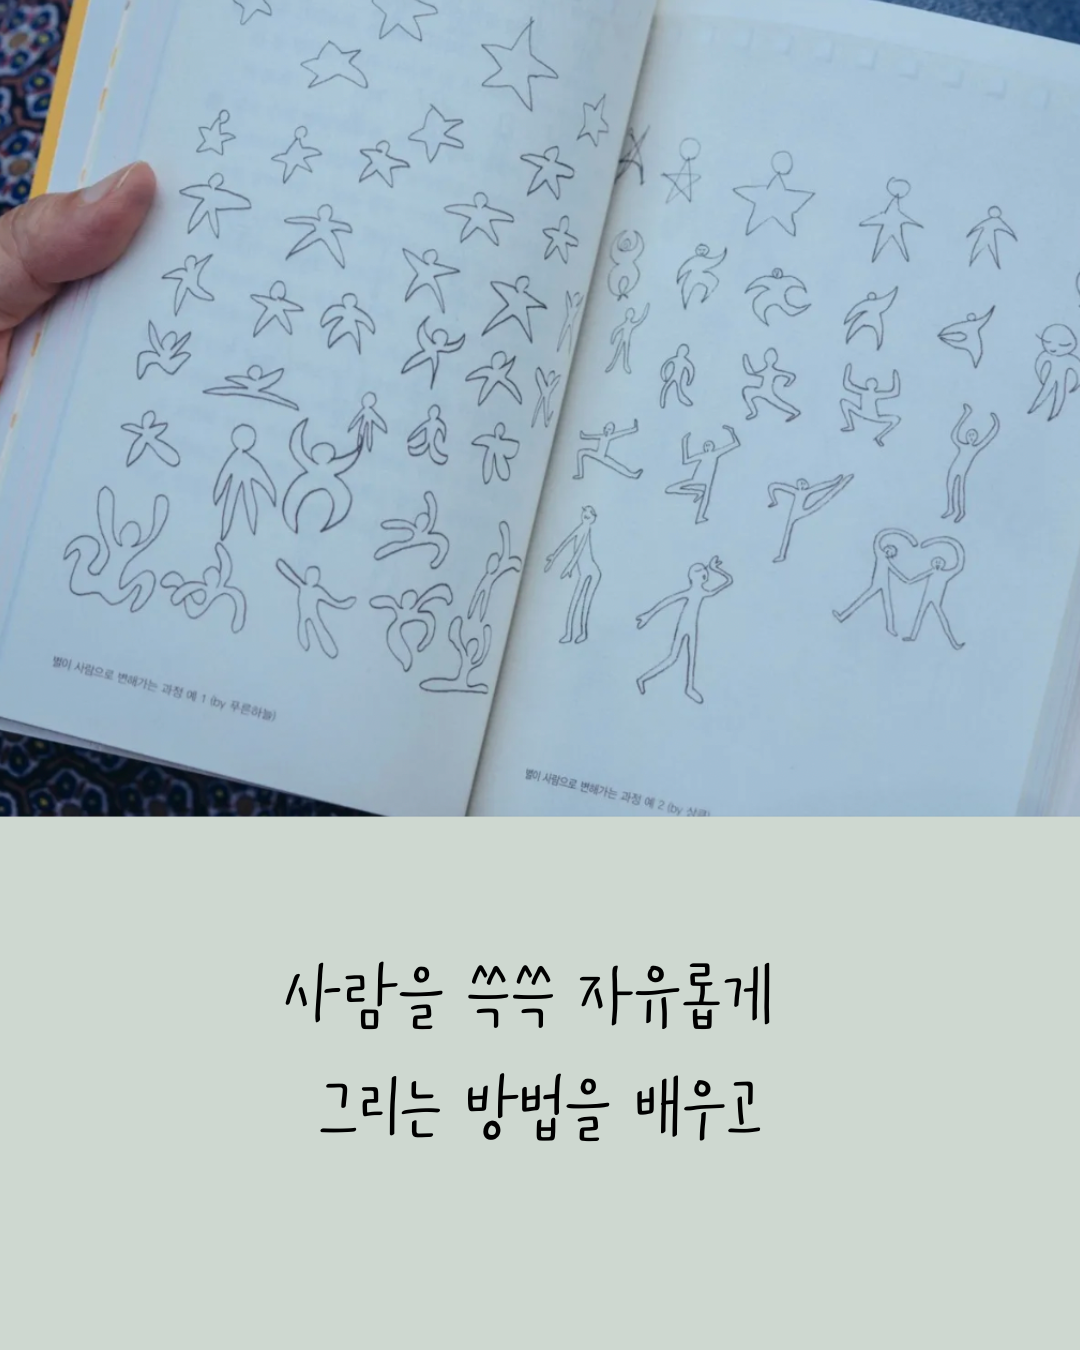 별이 사람으로 변해가는 과정 예 1 (by 푸른하늘)
별이 사람으로 변해가는 과정 예 2 (by
사람을 쓱쓱 자유롭게
그리는 방법을 배우고